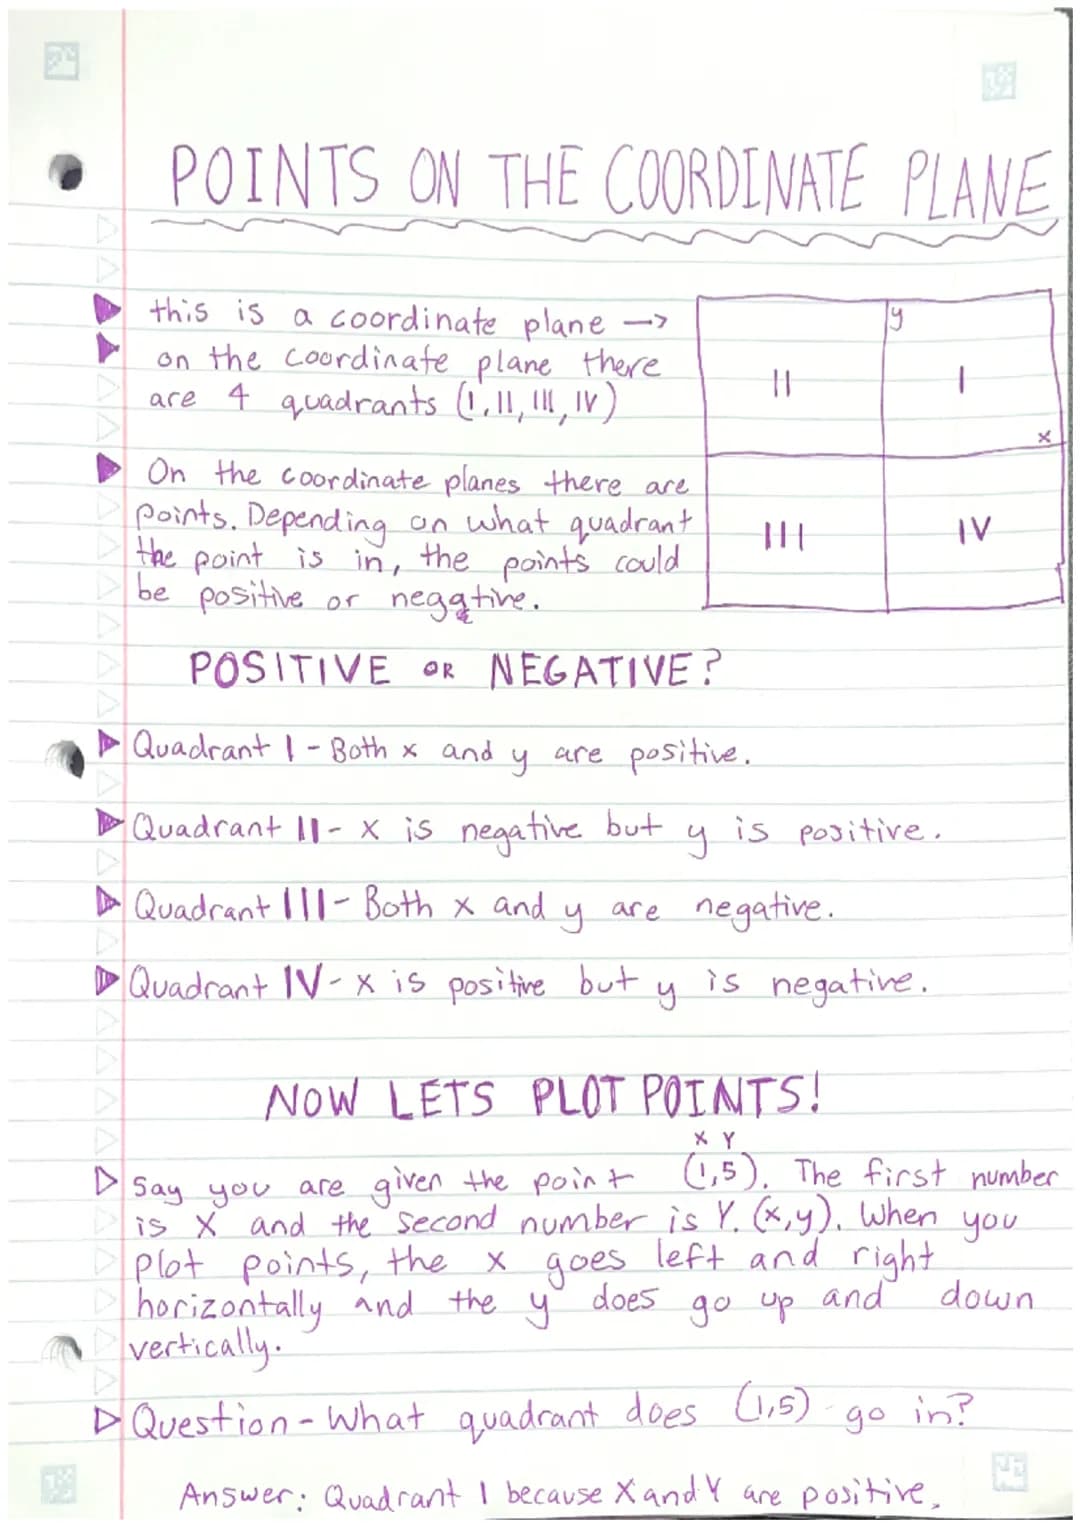 POINTS ON THE COORDINATE PLANE
this is a coordinate plane →
on the coordinate plane there
are 4 quadrants (I, II, III, IV)
y
II
I
x
III
IV
On the coordinate planes there are
points. Depending on what quadrant
the point is in, the points could
be positive or negative.
POSITIVE OR NEGATIVE?
Quadrant I - Both x and y are positive.
Quadrant II - x is negative but y is positive.
Quadrant III - Both x and y are negative.
Quadrant IV - x is positive but y is negative.
NOW LETS PLOT POINTS!
X Y
Say you are given the point (1,5). The first number
is X and the second number is Y. (x,y). When you
plot points, the x goes left and right
horizontally and the y does go up and down
vertically.
Question - What quadrant does (1,5) go in?
Answer: Quadrant I because X and Y are positive.